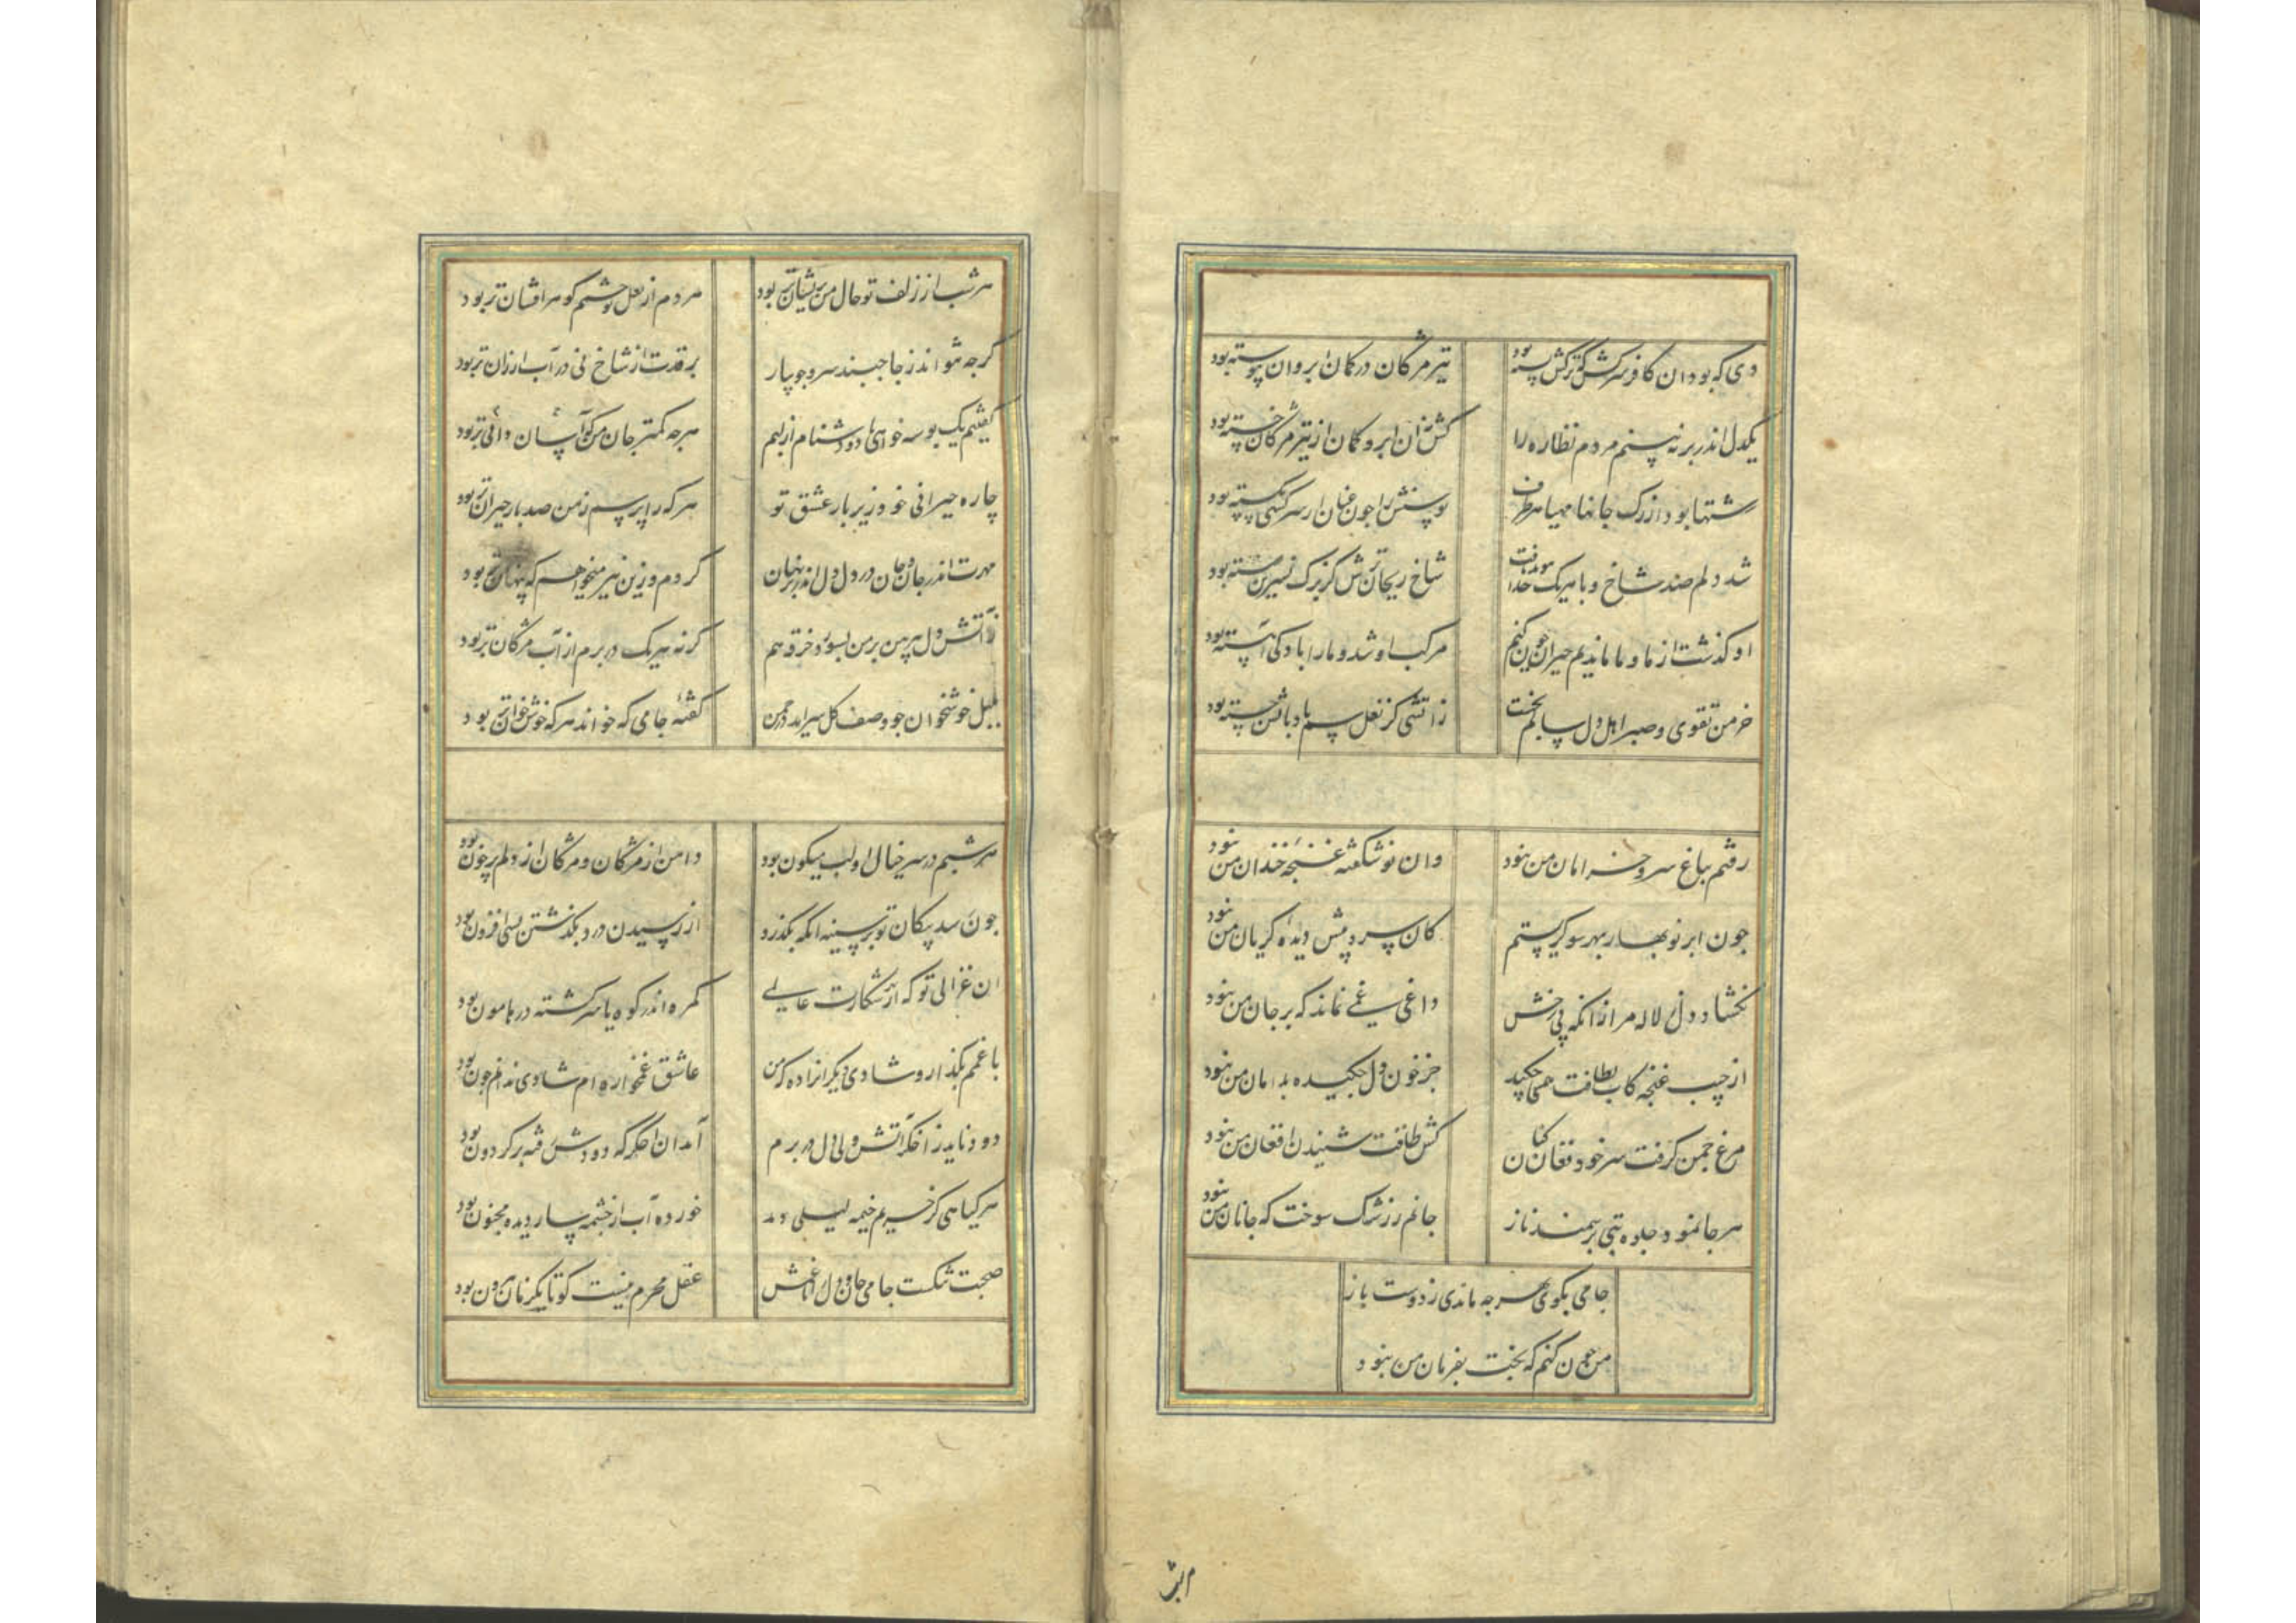 دی که بود آن کافر سرکش کترکش بسته بود تیر مژگان در کمان ابروان پیوسته بود
یکدل اندر بر نه بینم مردم نظاره را کش نه آن ابرو کمان از تیر مژگان خسته بود
کشتها بود از بزرگ جانها مهیا هر طرف بسکه را چون عنان از سرکشی بگسسته بود
شد دلم صد شاخ و با هر یک جدا سوند یافت شاخ ریحان ترش کز برک نسرین رسته بود
او کذشت از ما و ما ماندیم حیران چون کنیم مرکب او شد و ما را بادکی آهسته بود
خرمن تقوی و صبر اهل دل سالم بسوخت زاتشی کز نعل سم بادپایش جسته بود
رفتم بباغ سرو خرامان من نبود وان نوشکفته غنچه خندان من نبود
چون ابر نوبهار بهر سو کریستم کان سرو پیش دیده کریان من نبود
نکشاد دل ز لاله مرا زانکه بی رخش داغی نماند که بر جان من نبود
از جیب غنچه کاب لطافت همی چکید جز خون دل چکیده بدامان من نبود
مرغ چمن کرفت سر خود فغان کنان کش طاقت شنیدن افغان من نبود
هر جا نمود جلوه بتی بر سمند ناز جانم ز رشک سوخت که جانان من نبود
جامی بکوی بهر چه ماندی ز دوست باز
من چون کنم که بخت بفرمان من نبود
هر شب
هر شب از زلف تو حال من پریشان تر بود هر دم از لعل تو چشم کوهر افشان تر بود
کرچه نتواند ز جا جنبند سرو جویبار بر قدت از شاخ نی در آب لرزان تر بود
کفتیم یک بوسه خواهی یا دو دشنام از لبم هر چه کمتر جان من کو آسان و آنی تر بود
چاره حیرانی خود زیر بار عشق تو هر که را پرسم ز من صد بار حیران تر بود
مهرت اندر جان و جان در دل و دل اندر بر نهان کردم و زین نیز میخواهم که پنهان تر بود
ز آتش دل پیرهن بر من بسوزد خرقه هم کر نه هر یک در برم از آب مژکان تر بود
بلبل خوشخوان چو وصف کل سراید در چمن کفته جامی که خواند هر که خوش خوان تر بود
هر شبم در سر خیال آن لب میکون بود دامن از مژکان و مژکان از دلم پر خون بود
چون رسد پیکان تو بر سینه آنکه بکذرد از رسیدن درد بکذشتن بسی افزون بود
آن غزالی تو که از شکارت عالمی کمره اندر کوه یا سرکشته در هامون بود
با غمم بکذار و شادی دیکران را ده که من عاشق غمخواره ام شادی ندانم چون بود
دود ناید ز اخکر آتش ولی دل در برم آمد آن اخکر که دودش رفته بر کردون بود
هر کیاهی کز حریم خیمه لیلی دمد خورده آب از چشمه سار دیده مجنون بود
صحبت تنکست جامی جان و دل را با غمش عقل محرم نیست کو تا یکزمان بیرون بود